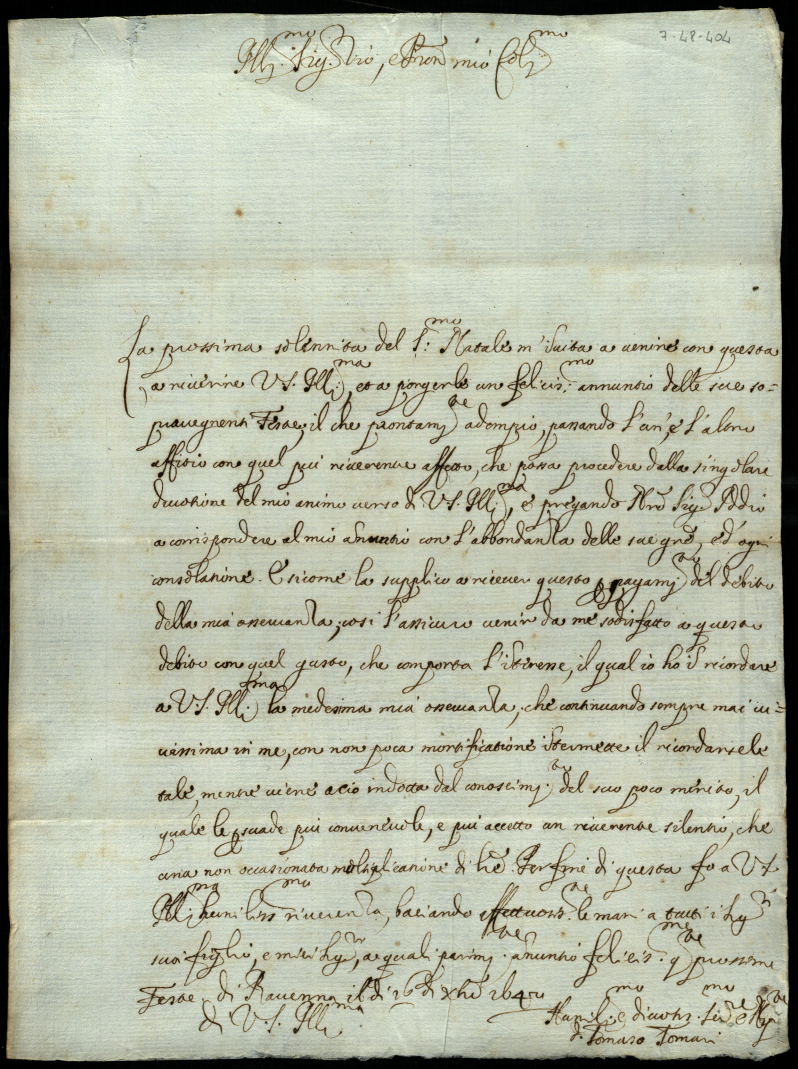 7-48-404
Ill.mo Sig.r Zio, e Pron mio Col.mo
La prossima solennita del S.mo Natale m'invita a venire con questa
a riverire V.S. Ill.ma, et a porgerle un felicis.mo annuntio delle sue so=
pravegnenti Feste; il che prontam.te adempio, passando l'un, e l'altro
affitio con quel più riverente affetto, che possa procedere dalla singolare
divotione del mio animo verso di V.S. Ill.ma, e pregando Nro Sig.re Iddio
a corrispondere al mio annuntio con l'abbondanza delle sue gre, ed'ogni
consolatione. E sicome la supplico a ricever questo p pagam.to del debito
della mia osservanza, cosi l'assicuro venir da me sodisfatto a questo
debito con quel gusto, che comporta l'interesse, il qual io hò il ricordare
a V.S. Ill.ma la medesima mia osservanza, che continuando sempre mai vi=
vissima in me, con non poca mortificatione intermette il ricordarsele
tale, mentre viene acio indotta dal conoscim.to del suo poco merito, il
quale le psuade più convenevole, e più accetto un riverente silentio, che
una non occasionata moltiplicatione di lre. Per fine di questa fo a V.S.
Ill.ma humiliss.ma riverenza, baciando affettuosis.te le mani a tutti i Sig.ri
suoi figli, e miei Sig.ri, a quali parim.te annuntio felicis.me q.te prossime
Feste. di Ravenna il di 16 di Xbre 164
di V.S. Ill.ma
Humil.mo e divotis.mo Ser.re e
d. Tomaso Tomai